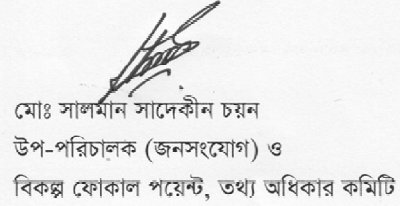 মোঃ সালমান সাদেকীন চয়ন
উপ-পরিচালক (জনসংযোগ) ও
বিকল্প ফোকাল পয়েন্ট, তথ্য অধিকার কমিটি